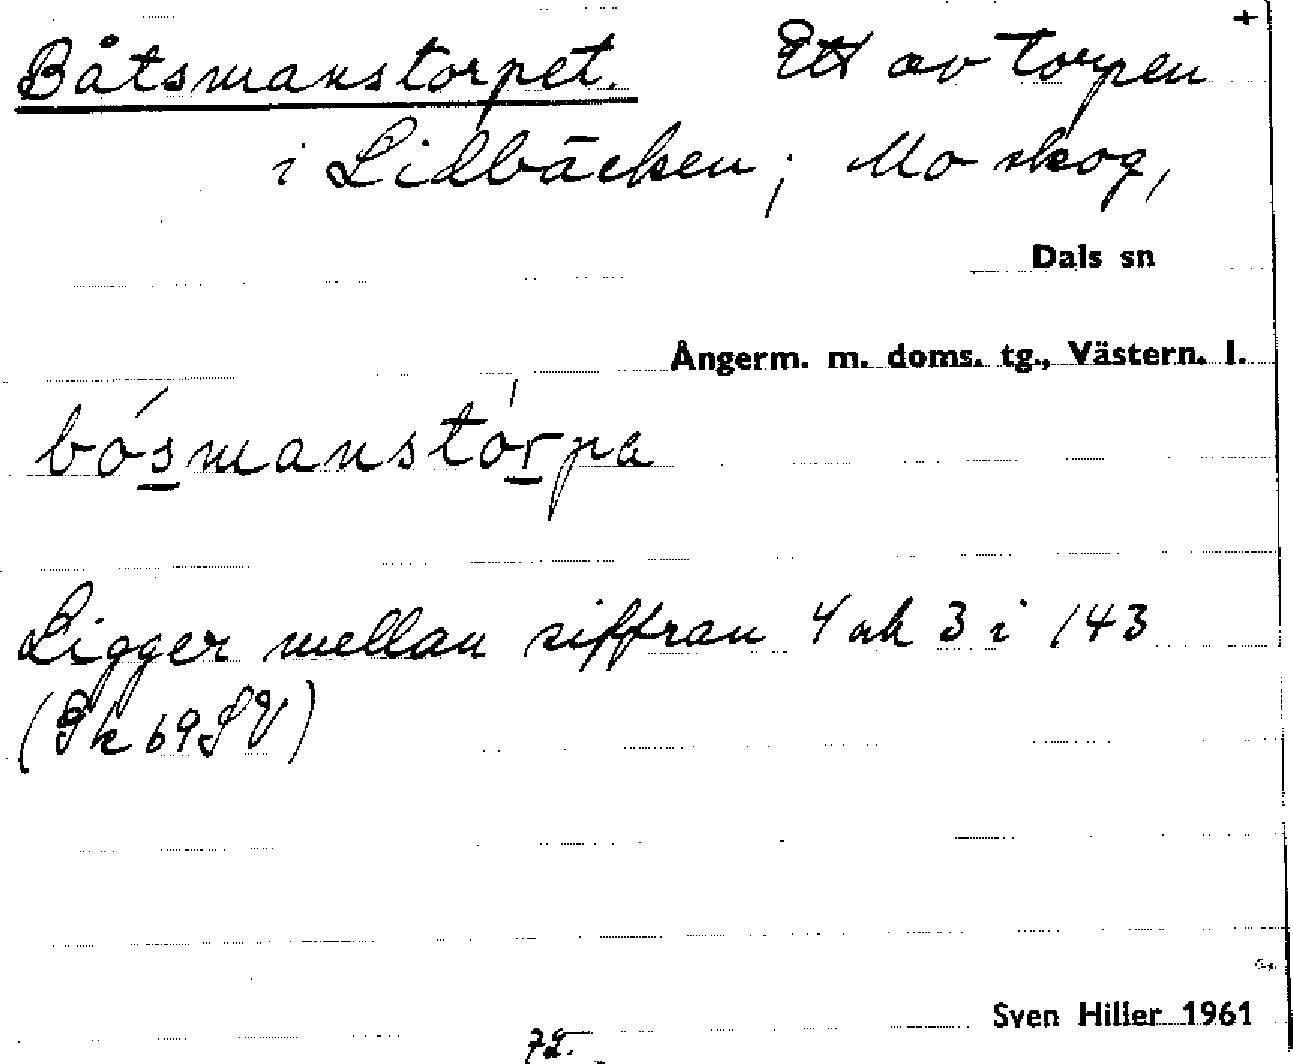 +
Båtsmanstorpet. Ett av torpen
i Lidbäcken; Mo skog,
Dals sn
Ångerm. m. doms. tg., Västern. l.
bósmanstórpa
Ligger mellan siffran 4 och 3 i 143
(Gk 69 SV)
Sven Hiller 1961
72.